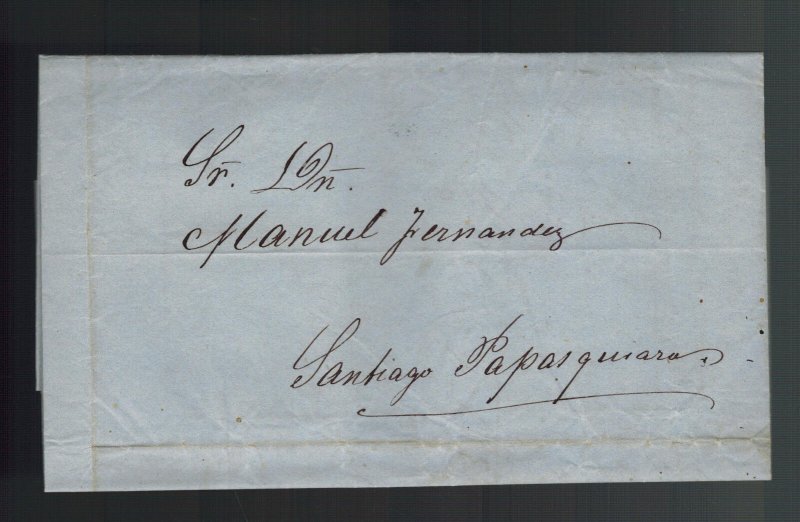 Sr. Dn.
Manuel Fernandez
Santiago Papasquiaro.